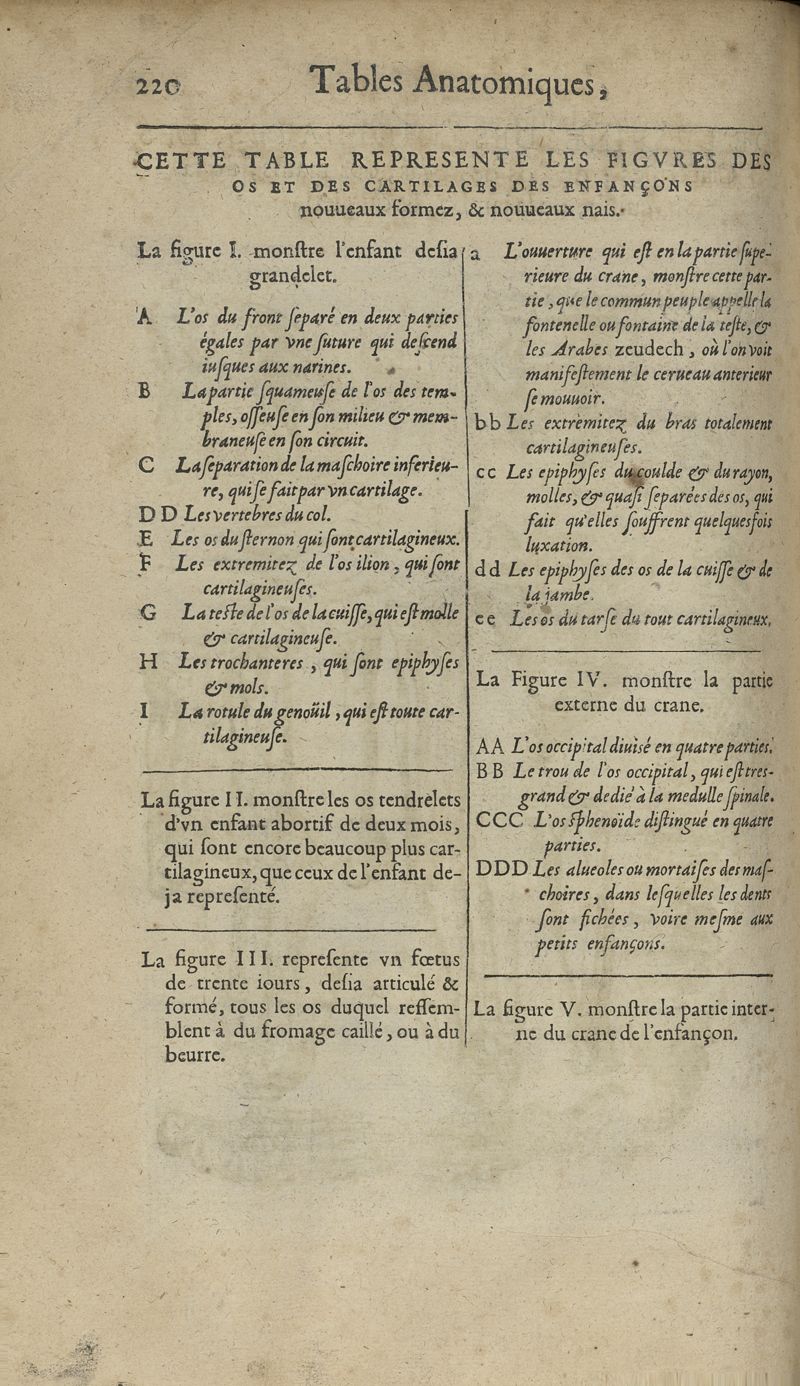 220 Tables Anatomiques,
CETTE TABLE REPRESENTE LES FIGVRES DES
OS ET DES CARTILAGES DES ENFANÇONS
nouueaux formez, & nouueaux nais.
La figure I. monſtre l'enfant deſia
grandelet.
A L'os du front ſeparé en deux parties
égales par vne ſuture qui deſcend
iuſques aux narines.
B La partie ſquameuſe de l'os des tem-
ples, oſſeuſe en ſon milieu & mem-
braneuſe en ſon circuit.
C La ſeparation de la maſchoire inferieu-
re, qui ſe fait par vn cartilage.
D D Les vertebres du col.
E Les os du ſternon qui ſont cartilagineux.
F Les extremitez de l'os ilion, qui ſont
cartilagineuſes.
G La teſte de l'os de la cuiſſe, qui eſt molle
& cartilagineuſe.
H Les trochanteres, qui ſont epiphyſes
& mols.
I La rotule du genoüil, qui eſt toute car-
tilagineuſe.
La figure II. monſtre les os tendrelets
d'vn enfant abortif de deux mois,
qui ſont encore beaucoup plus car-
tilagineux, que ceux de l'enfant de-
ja repreſenté.
La figure III. repreſente vn fœtus
de trente iours, deſia articulé &
formé, tous les os duquel reſſem-
blent à du fromage caillé, ou à du
beurre.
a L'ouuerture qui eſt en la partie ſupe-
rieure du crane, monſtre cette par-
tie, que le commun peuple appelle la
fontenelle ou fontaine de la teſte, &
les Arabes zeudech, où l'on voit
manifeſtement le cerueau anterieur
ſe mouuoir.
b b Les extremitez du bras totalement
cartilagineuſes.
c c Les epiphyſes du coulde & du rayon,
molles, & quaſi ſeparées des os, qui
fait qu'elles ſouffrent quelquesfois
luxation.
d d Les epiphyſes des os de la cuiſſe & de
la jambe.
e e Les os du tarſe du tout cartilagineux.
La Figure IV. monſtre la partie
externe du crane.
A A L'os occipital diuisé en quatre parties.
B B Le trou de l'os occipital, qui eſt tres-
grand & dedié à la medulle ſpinale.
CCC L'os Sphenoïde diſtingué en quatre
parties.
DDD Les alueoles ou mortaiſes des maſ-
choires, dans leſquelles les dents
ſont fichées, voire meſme aux
petits enfançons.
La figure V. monſtre la partie inter-
ne du crane de l'enfançon.